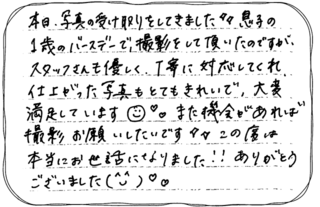 本日、写真の受け取りをしてきました♪♪ 息子の
1歳のバースデーで撮影をして頂いたのですが、
スタッフさんも優しく、丁寧に対応してくれ
仕上がった写真もとてもきれいで、大変
満足しています☺♡。また機会があれば
撮影お願いしたいです♪♪ この度は
本当にお世話になりました!! ありがとう
ございました(^^)♡。